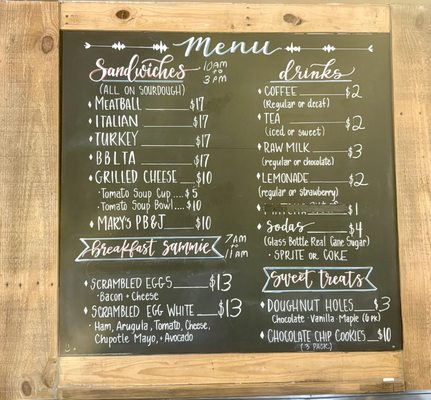 Menu
Sandwiches 10AM to 3PM
(ALL ON SOURDOUGH)
MEATBALL $17
ITALIAN $17
TURKEY $17
BBLTA $17
GRILLED CHEESE $10
• Tomato Soup Cup .... $5
• Tomato Soup Bowl .... $10
MARY'S PB&J $10
Breakfast Sammie 7AM to 11AM
SCRAMBLED EGGS $13
• Bacon + Cheese
SCRAMBLED EGG WHITE $13
• Ham, Arugula, Tomato, Cheese,
Chipotle Mayo, + Avocado
drinks
COFFEE $2
(Regular or decaf)
TEA $2
(iced or sweet)
RAW MILK $3
(regular or chocolate)
LEMONADE $2
(regular or strawberry)
$1
Sodas $4
(Glass Bottle Real Cane Sugar)
• SPRITE or COKE
Sweet Treats
DOUGHNUT HOLES $3
Chocolate • Vanilla • Maple (6 PK)
CHOCOLATE CHIP COOKIES $10
(3 PACK)